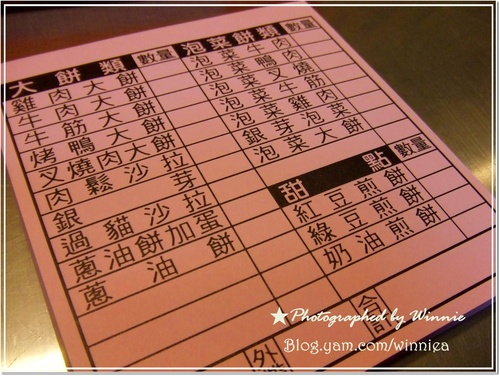 大餅類 數量
雞肉大餅
牛肉大餅
牛筋大餅
烤鴨大餅
叉燒肉大餅
肉鬆沙拉
銀芽
過貓沙拉
蔥油餅加蛋
蔥油餅
泡菜餅類 數量
泡菜牛肉
泡菜鴨肉
泡菜叉燒
泡菜牛筋
泡菜雞肉
銀芽泡菜
泡菜大餅
甜點 數量
紅豆煎餅
綠豆煎餅
奶油煎餅
外
合計
★ Photographed by Winnie
Blog.yam.com/winniea